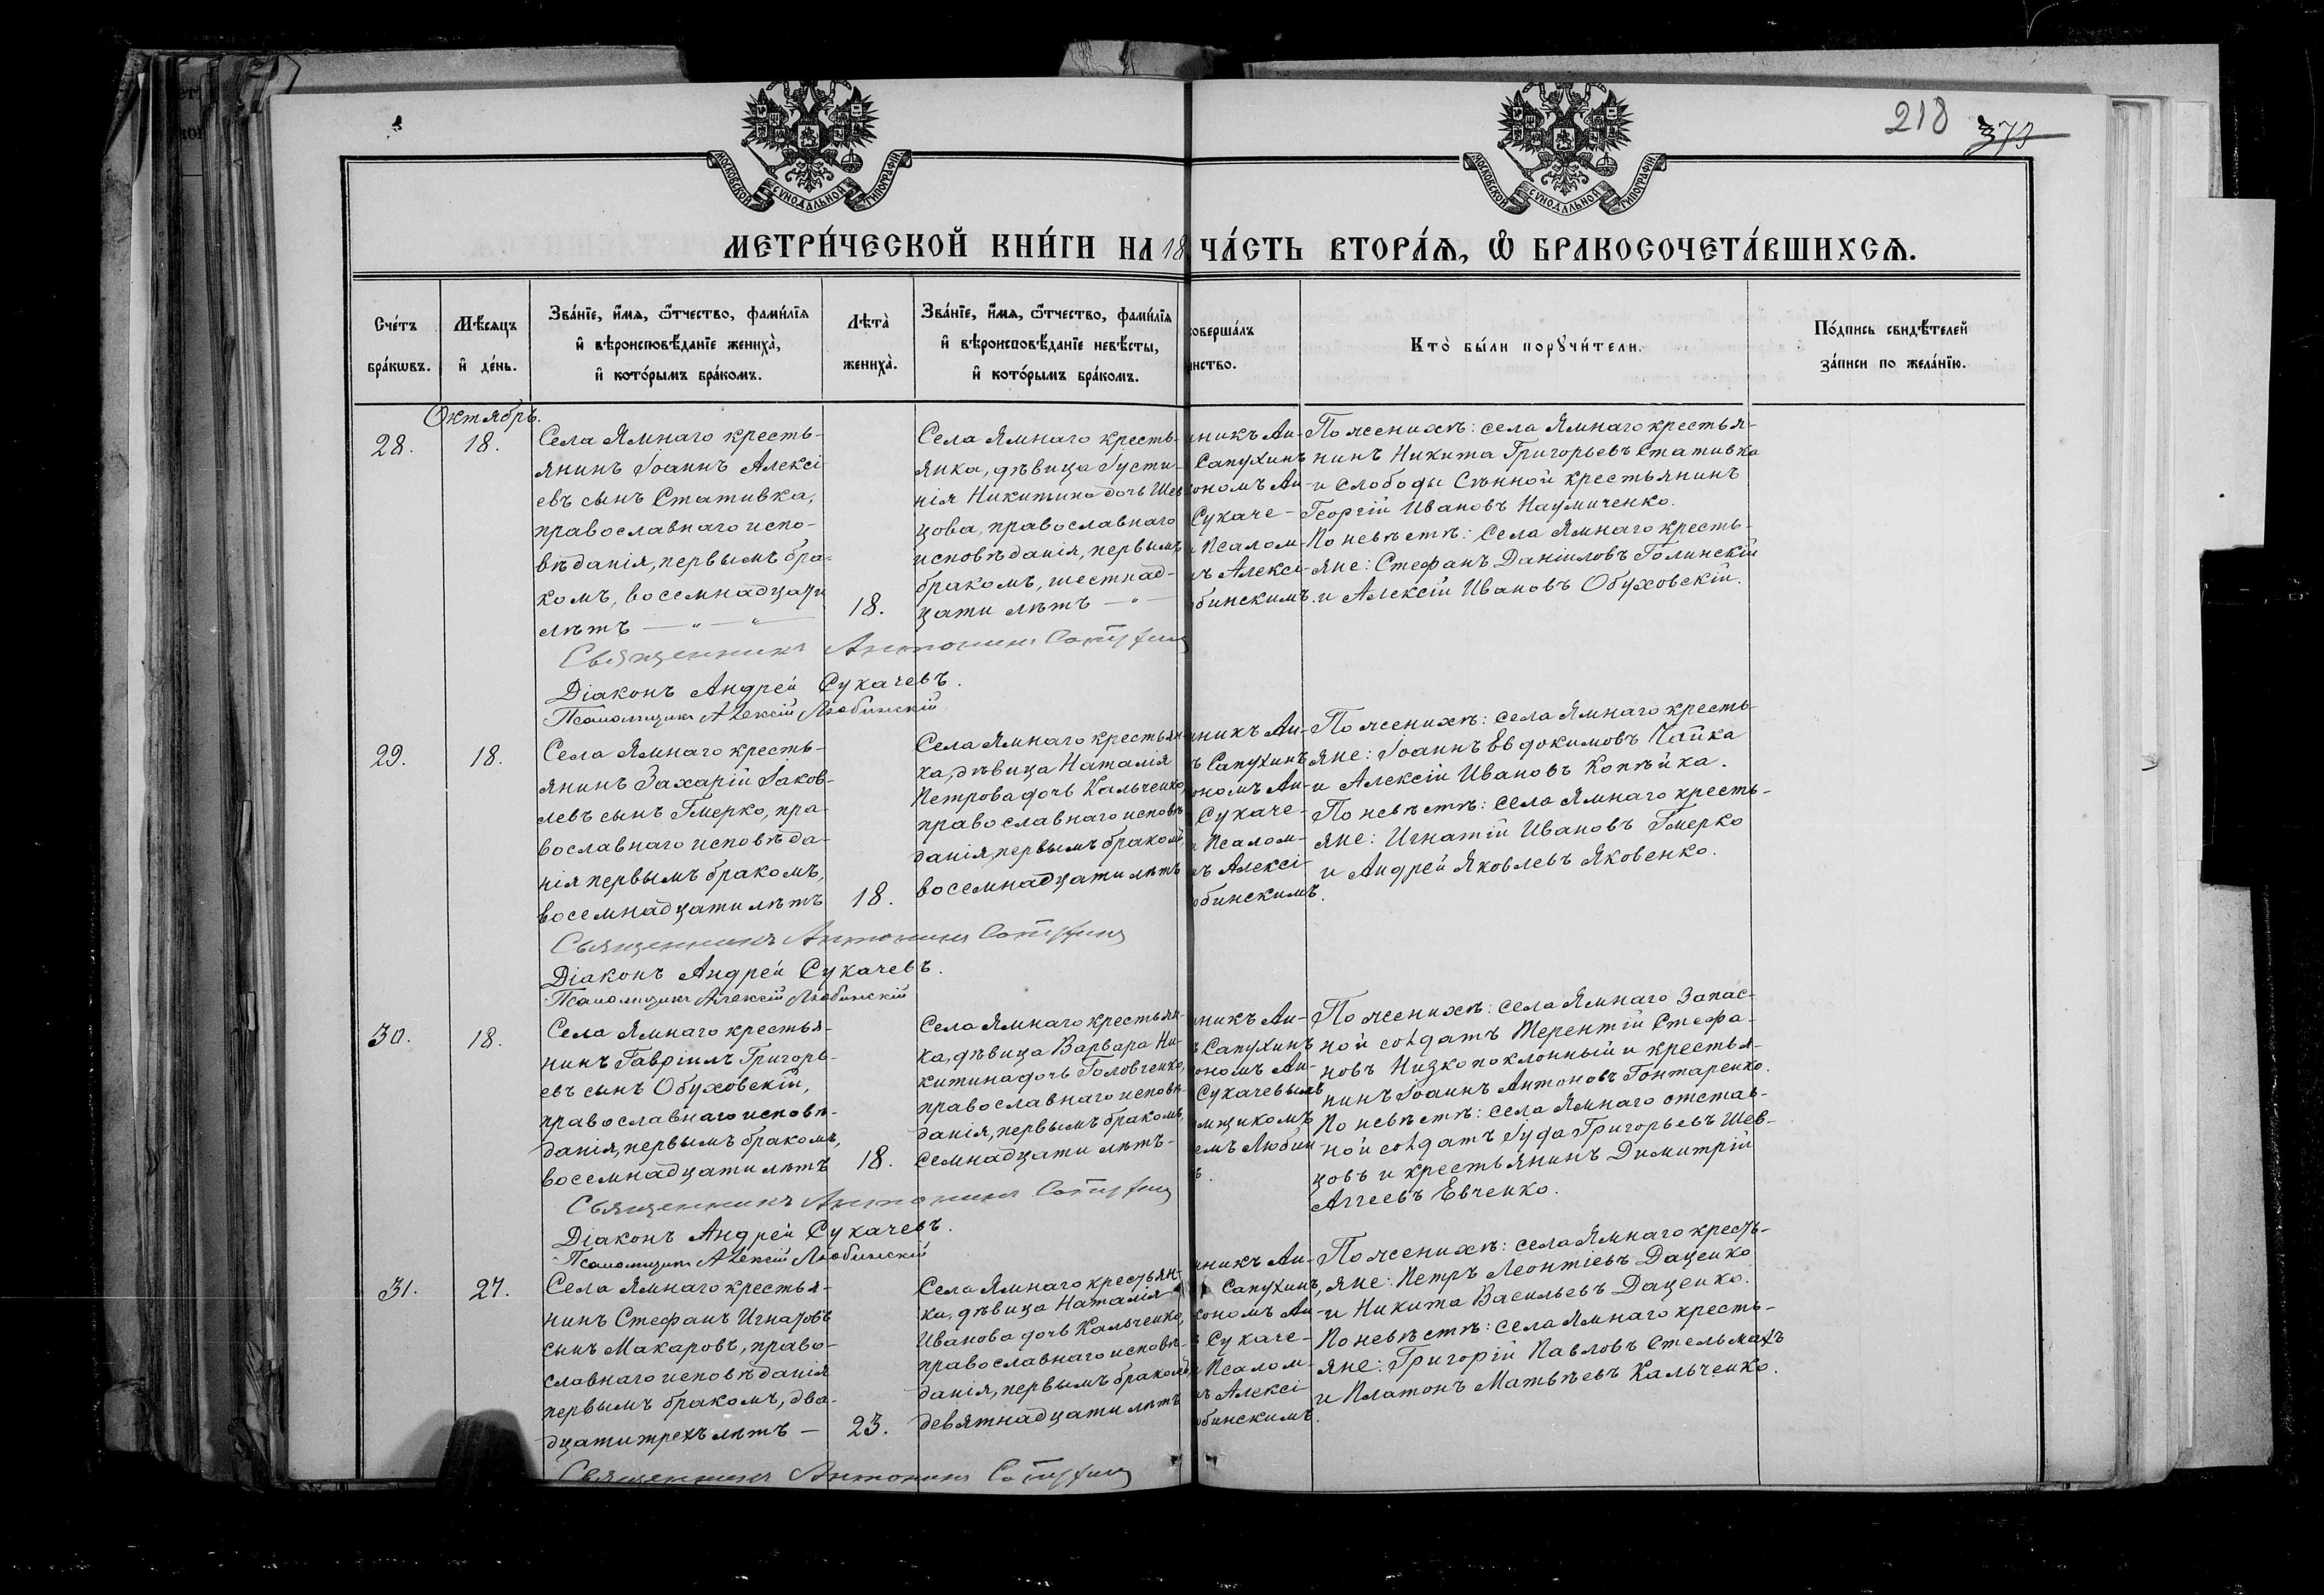 218
373
МОСКОВСКОЙ СѴНОДАЛЬНОЙ ТИПОГРАФІИ
МОСКОВСКОЙ СѴНОДАЛЬНОЙ ТИПОГРАФІИ
МЕТРИ́ЧЕСКОЙ КНИ́ГИ НА 18
ЧА́СТЬ ВТОРА́Ѧ, Ѿ БРАКОСОЧЕТА́ВШИХСѦ.
Сче́тъ
бра́кѡвъ.
Мѣ́сяцъ
и҆ де́нь.
Зва́нїе, и҆́мѧ, ѻ҆́тчество, фами́лїѧ
и҆ вѣроисповѣ́данїе жениха̀,
и҆ кото́рымъ бра́комъ.
Лѣта̀
жениха̀.
Зва́нїе, и҆́мѧ, ѻ҆́тчество, фами́лїѧ
и҆ вѣроисповѣ́данїе невѣ́сты,
и҆ кото́рымъ бра́комъ.
соверша́лъ
инство.
Кто̀ бы́ли порꙋчи́тели.
По́дпись свидѣ́телей
за́писи по жела́нїю.
Октябрь.
28.
18.
Села Ямнаго кресть-
янинъ Іоаннъ Алексі-
евъ сынъ Стативка,
православнаго испо-
вѣданія, первымъ бра-
комъ, восемнадцати
лѣтъ — " — " —
18.
Села Ямнаго кресть-
янка, дѣвица Іусти-
нія Никитина дочь Шев
цова, православнаго
исповѣданія, первымъ
бракомъ, шестнад-
цати лѣтъ — " —
нникъ Ан-
Сапухинъ
кономъ Ан-
Сукаче-
и Псалом-
мъ Алексі-
юбинскимъ.
По женихѣ: села Ямнаго крестья-
нинъ Никита Григорьевъ Стативка
и слободы Сѣнной крестьянинъ
Георгій Ивановъ Наумиченко.
По невѣстѣ: Села Ямнаго кресть-
яне: Стефанъ Даніиловъ Голинскій
и Алексій Ивановъ Обуховскій.
Священникъ Антонинъ Сапухинъ
Діаконъ Андрей Сукачевъ.
Псаломщикъ Алексій Любинскій
29.
18.
Села Ямнаго кресть-
янинъ Захарій Іаков-
левъ сынъ Гмерко, пра-
вославнаго исповѣда-
нія первымъ бракомъ,
восемнадцати лѣтъ
18.
Села Ямнаго крестьян
ка, дѣвица Наталія
Петрова дочь Кальченко,
православнаго исповѣ
данія, первымъ бракомъ,
восемнадцати лѣтъ
нникъ Ан-
ъ Сапухинъ
кономъ Ан-
Сукаче-
и Псалом-
мъ Алексі-
юбинскимъ.
По женихѣ: села Ямнаго кресть-
яне: Іоаннъ Евдокимовъ Чайка
и Алексій Ивановъ Копѣйка.
По невѣстѣ: села Ямнаго кресть-
яне: Игнатій Ивановъ Гмерко
и Андрей Яковлевъ Яковенко.
Священникъ Антонинъ Сапухинъ
Діаконъ Андрей Сукачевъ.
Псаломщикъ Алексій Любинскій
30.
18.
Села Ямнаго крестья-
нинъ Гавріилъ Григорь-
евъ сынъ Обуховскій,
православнаго исповѣ-
данія, первымъ бракомъ,
восемнадцати лѣтъ
18.
Села Ямнаго крестьян-
ка, дѣвица Варвара Ни-
китина дочь Головченко,
православнаго исповѣ-
данія, первымъ бракомъ,
семнадцати лѣтъ -
нникъ Ан-
ъ Сапухинъ
кономъ Ан-
Сукачевымъ
омщикомъ
емъ Любин
ъ.
По женихѣ: села Ямнаго запас-
ной солдатъ Терентій Стефа-
новъ Низкопоклонный и крестья-
нинъ Іоаннъ Антоновъ Гонтаренко.
По невѣстѣ: села Ямнаго отстав-
ной солдатъ Іуда Григорьевъ Шев-
цовъ и крестьянинъ Димитрій
Аггеевъ Евченко.
Священникъ Антонинъ Сапухинъ
Діаконъ Андрей Сукачевъ.
Псаломщикъ Алексій Любинскій
31.
27.
Села Ямнаго крестья-
нинъ Стефанъ Игнатовъ
сынъ Макаровъ, право-
славнаго исповѣданія
первымъ бракомъ, два-
дцати трехъ лѣтъ —
23.
Села Ямнаго крестьян-
ка, дѣвица Наталія
Иванова дочь Кальченко,
православнаго исповѣ-
данія, первымъ бракомъ
девятнадцати лѣтъ
нникъ Ан-
Сапухинъ,
кономъ Ан-
ъ Сукаче-
и Псалом-
мъ Алексі-
юбинскимъ.
По женихѣ: села Ямнаго кресть-
яне: Петръ Леонтіевъ Даценко
и Никита Васильевъ Даценко.
По невѣстѣ: села Ямнаго кресть-
яне: Григорій Павловъ Стельмахъ
и Платонъ Матвѣевъ Кальченко.
Священникъ Антонинъ Сапухинъ